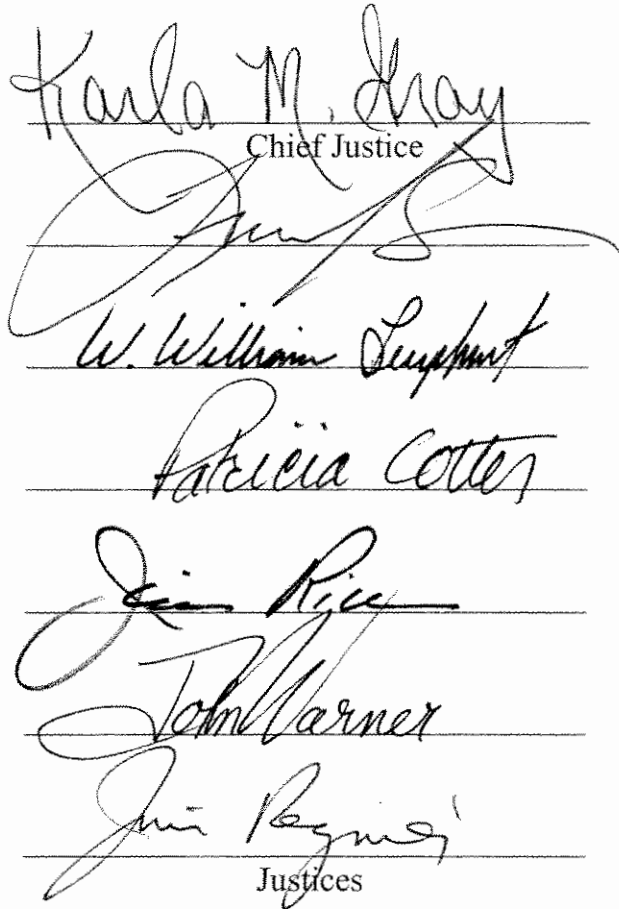 Karla M. Gray
Chief Justice
W. William Leaphart
Patricia Cotter
Jim Rice
John Warner
Jim Regnier
Justices